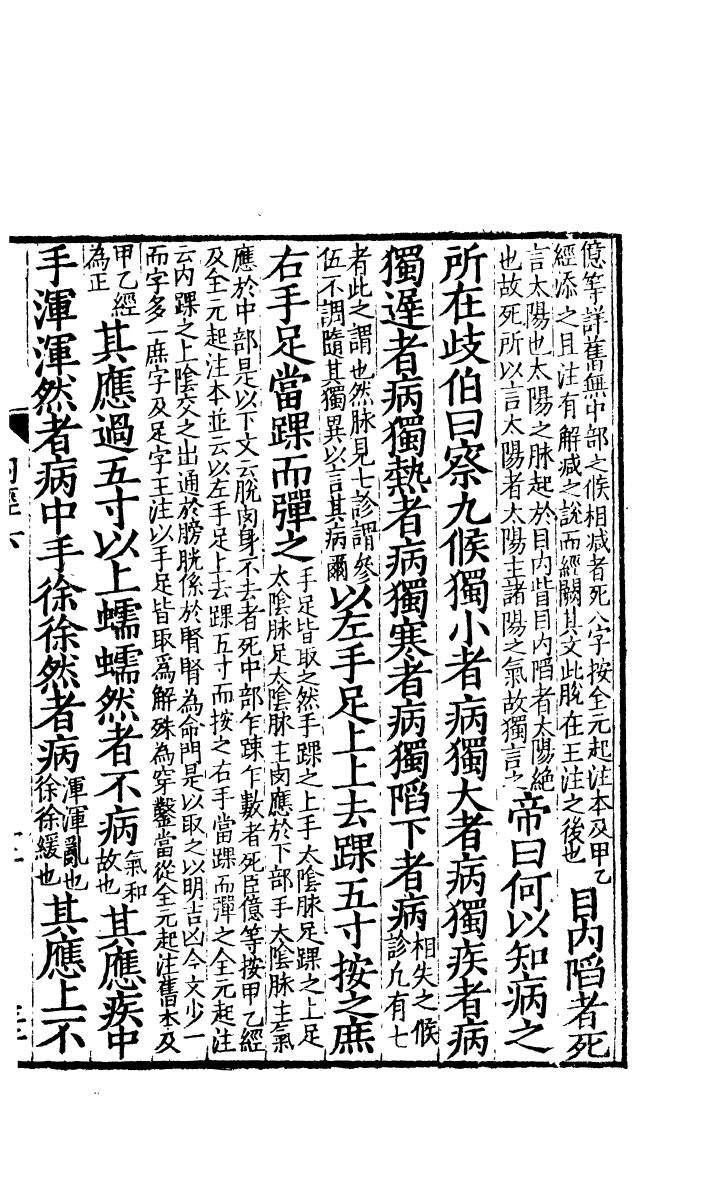 億等詳舊無中部之候相減者死八字按全元起注本及甲乙
經添之且注有解減之說而經闕其文此脫在王注之後也
目內陷者死
言太陽也太陽之脉起於目內眥目內陷者太陽絶
也故死所以言太陽者太陽主諸陽之氣故獨言之
帝曰何以知病之
所在歧伯曰察九候獨小者病獨大者病獨疾者病
獨遲者病獨熱者病獨寒者病獨陷下者病
相失之候
診凡有七
者此之謂也然脉見七診謂參
伍不調隨其獨異以言其病爾
以左手足上上去踝五寸按之庶
右手足當踝而彈之
手足皆取之然手踝之上手太陰脉足踝之上足
太陰脉足太陰脉主肉應於下部手太陰脉主氣
應於中部是以下文云脫肉身不去者死中部乍踈乍數者死臣億等按甲乙經
及全元起注本並云以左手足上去踝五寸而按之右手當踝而彈之全元起注
云內踝之上陰交之出通於膀胱係於腎腎為命門是以取之以明吉凶今文少一
而字多一庶字及足字王注以手足皆取爲解殊為穿鑿當從全元起注舊本及
甲乙經
為正
其應過五寸以上蠕蠕然者不病
氣和
故也
其應疾中
手渾渾然者病中手徐徐然者病
渾渾亂也
徐徐緩也
其應上不